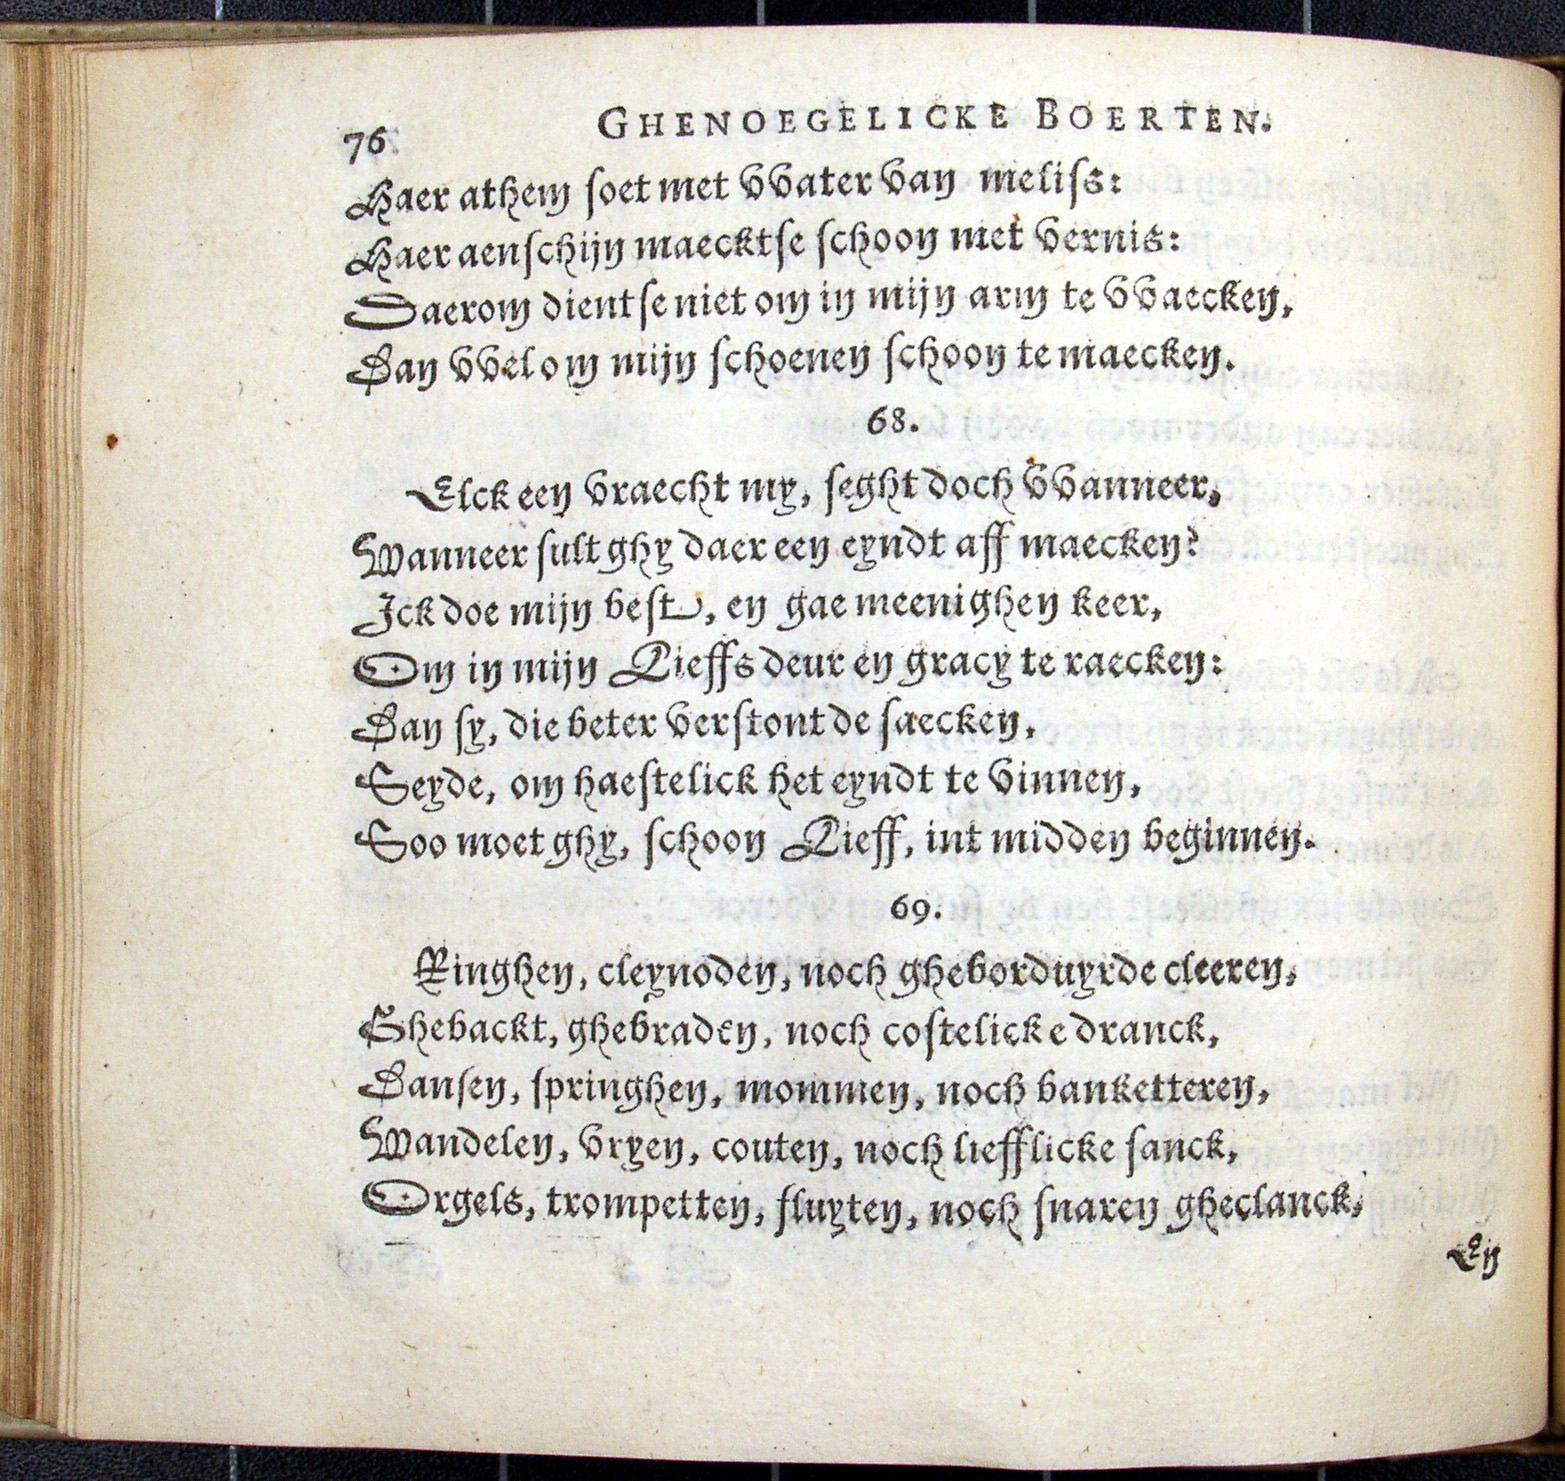 76 GHENOEGELICKE BOERTEN.
Haer athem soet met VVater van meliss:
Haer aenschijn maecktse schoon met vernis:
Daerom dientse niet om in mijn arm te VVaecken,
Dan VVel om mijn schoenen schoon te maecken.
68.
Elck een vraecht my, seght doch VVanneer,
Wanneer sult ghy daer een eyndt aff maecken?
Ick doe mijn best, en gae meenighen keer,
Om in mijn Lieffs deur en gracy te raecken:
Dan sy, die beter verstont de saecken,
Seyde, om haestelick het eyndt te vinnen,
Soo moet ghy, schoon Lieff, int midden beginnen.
69.
Ringhen, cleynoden, noch gheborduyrde cleeren,
Ghebackt, ghebraden, noch costelicke dranck,
Dansen, springhen, mommen, noch banketteren,
Wandelen, vryen, couten, noch liefflicke sanck,
Orgels, trompetten, fluyten, noch snaren gheclanck,
En